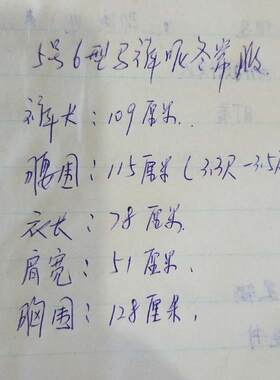 5号6型马裤呢冬常服
裤长：109厘米.
腰围：115厘米（3.3尺-3.5尺
衣长：78厘米.
肩宽：51厘米.
胸围：128厘米.